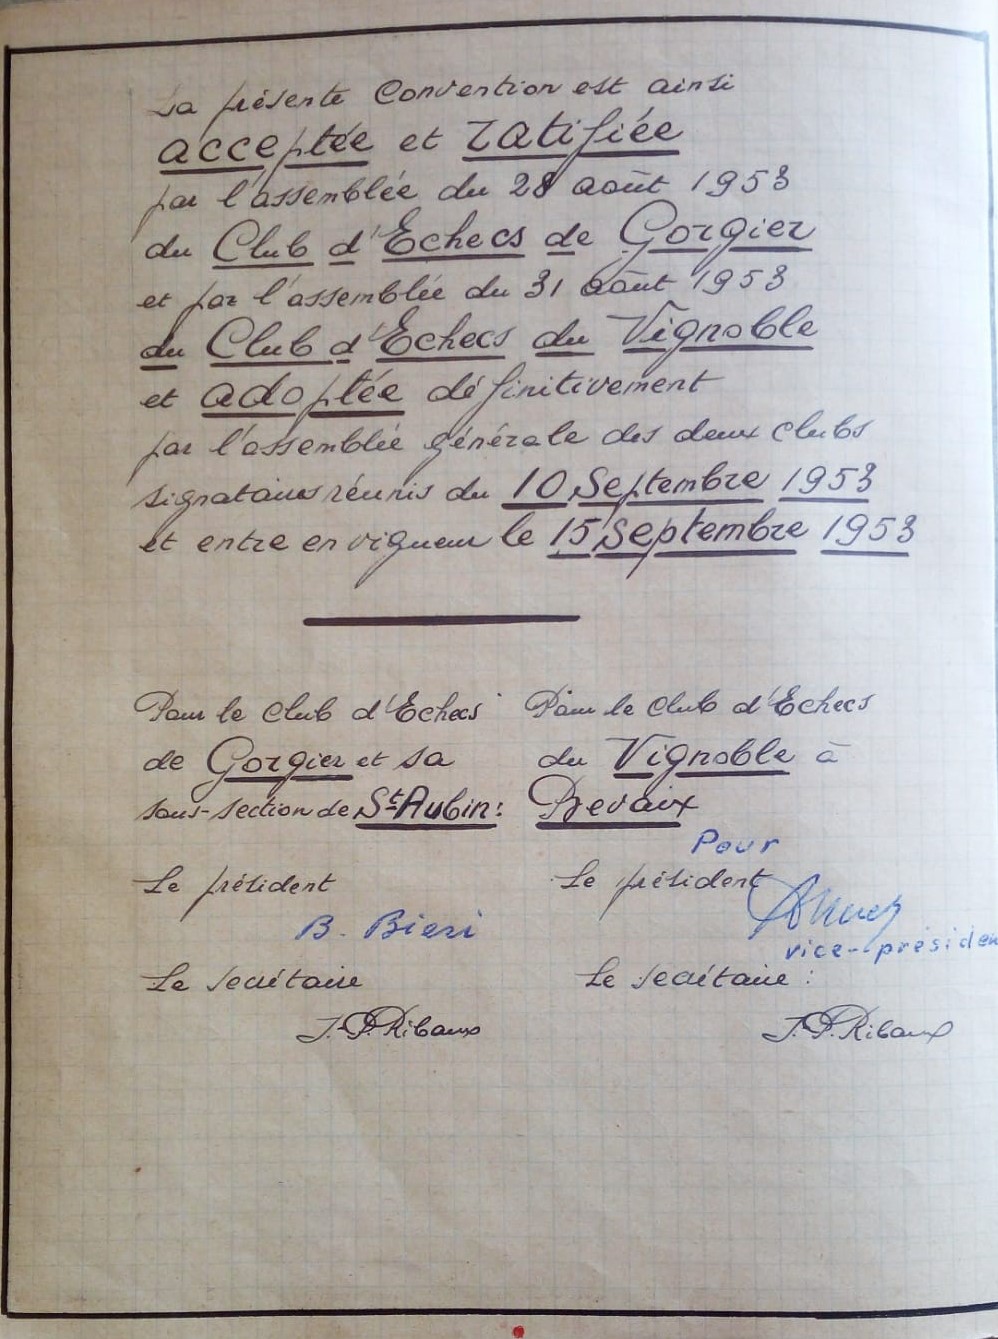 La présente Convention est ainsi
acceptée et ratifiée
par l'assemblée du 28 août 1953
du Club d'Echecs de Gorgier
et par l'assemblée du 31 août 1953
du Club d'Echecs du Vignoble
et adoptée définitivement
par l'assemblée générale des deux clubs
signataires réunis du 10 Septembre 1953
et entre en vigueur le 15 Septembre 1953
Pour le Club d'Echecs
de Gorgier et sa
sous-section de St Aubin:
Le président
B. Bieri
Le secrétaire
J.-P. Ribaux
Pour le Club d'Echecs
du Vignoble à
Bevaix
Pour
Le président
vice-présiden
Le secrétaire :
J.-P. Ribaux